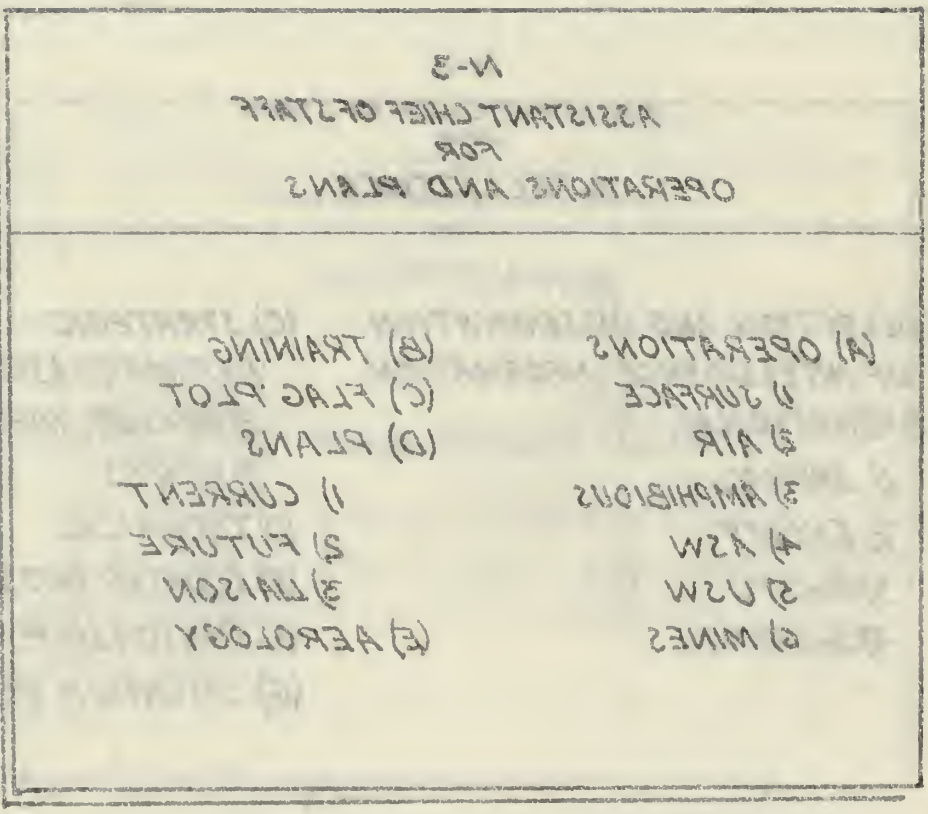 N-3
ASSISTANT CHIEF OF STAFF
FOR
OPERATIONS AND PLANS
(A) OPERATIONS
1) SURFACE
2) AIR
3) AMPHIBIOUS
4) ASW
5) USW
6) MINES
(B) TRAINING
(C) FLAG PLOT
(D) PLANS
1) CURRENT
2) FUTURE
3) LIAISON
(E) AEROLOGY